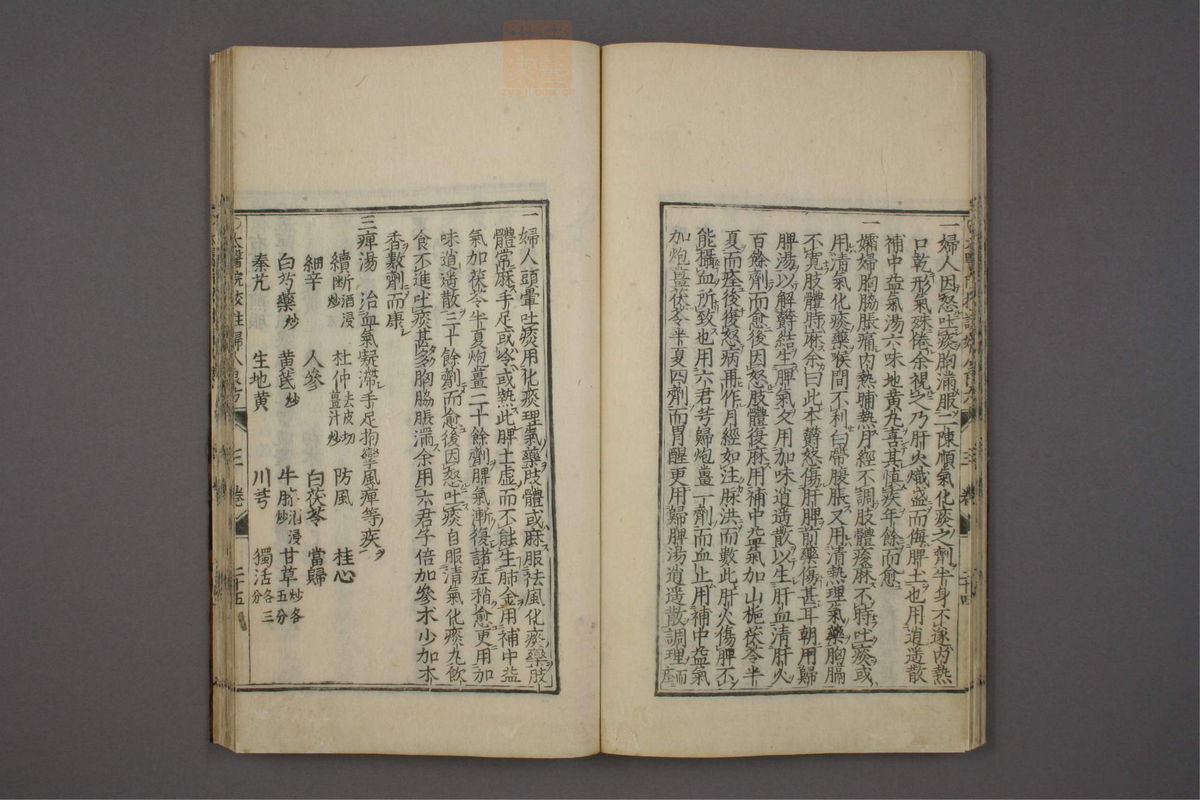 一婦人因怒吐痰胸滿服二陳順氣化痰之劑半身不遂内熱
口乾形氣殊倦余視之乃肝火熾盛而侮脾土也用逍遥散
補中益氣湯六味地黄丸喜其慎疾年餘而愈
一孀婦胸脇脹痛内熱晡熱月經不調肢體痠麻不時吐痰或
用清氣化痰藥喉間不利白帶腹脹又用清熱理氣藥胸膈
不寬肢體時麻余曰此本欝怒傷肝脾前藥傷甚耳朝用歸
脾湯以解欝結生脾氣夕用加味逍遥散以生肝血清肝火
百餘劑而愈後因怒肢體復麻用補中益氣加山梔茯苓半
夏而痊後復怒病再作月經如注脉洪而數此肝火傷脾不
能攝血所致也用六君芎歸炮薑一劑而血止用補中益氣
加炮薑茯苓半夏四劑而胃醒更用歸脾湯逍遥散調理而痊
三 卷 二十四
太醫院校註婦人良方 三 卷 二十五
一婦人頭暈吐痰用化痰理氣藥肢體或麻服祛風化痰藥肢
體常麻手足或冷或熱此脾土虚而不能生肺金用補中益
氣加茯苓半夏炮薑二十餘劑脾氣漸復諸症稍愈更用加
味逍遥散三十餘劑而愈後因怒吐痰自服清氣化痰丸飲
食不進吐痰甚多胸脇脹滿余用六君子倍加參朮少加木
香數劑而康
三痺湯 治血氣凝滯手足拘攣風痺等疾
續斷酒浸炒 杜仲去皮切薑汁炒 防風 桂心
細辛 人參 白茯苓 當歸
白芍藥炒 黄芪炒 牛膝酒浸炒 甘草炒各五分
秦艽 生地黄 川芎 獨活各三分